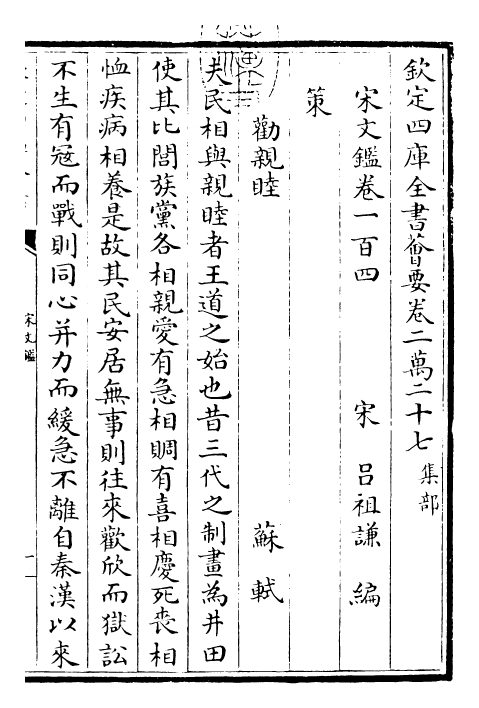 欽定四庫全書薈要卷二萬二十七 集部
宋文鑑卷一百四 宋 呂祖謙 編
策
勸親睦 蘇軾
夫民相與親睦者王道之始也昔三代之制畫為井田
使其比閭族黨各相親愛有急相賙有喜相慶死喪相
恤疾病相養是故其民安居無事則往來歡欣而獄訟
不生有寇而戰則同心并力而緩急不離自秦漢以來
宋文鑑
一